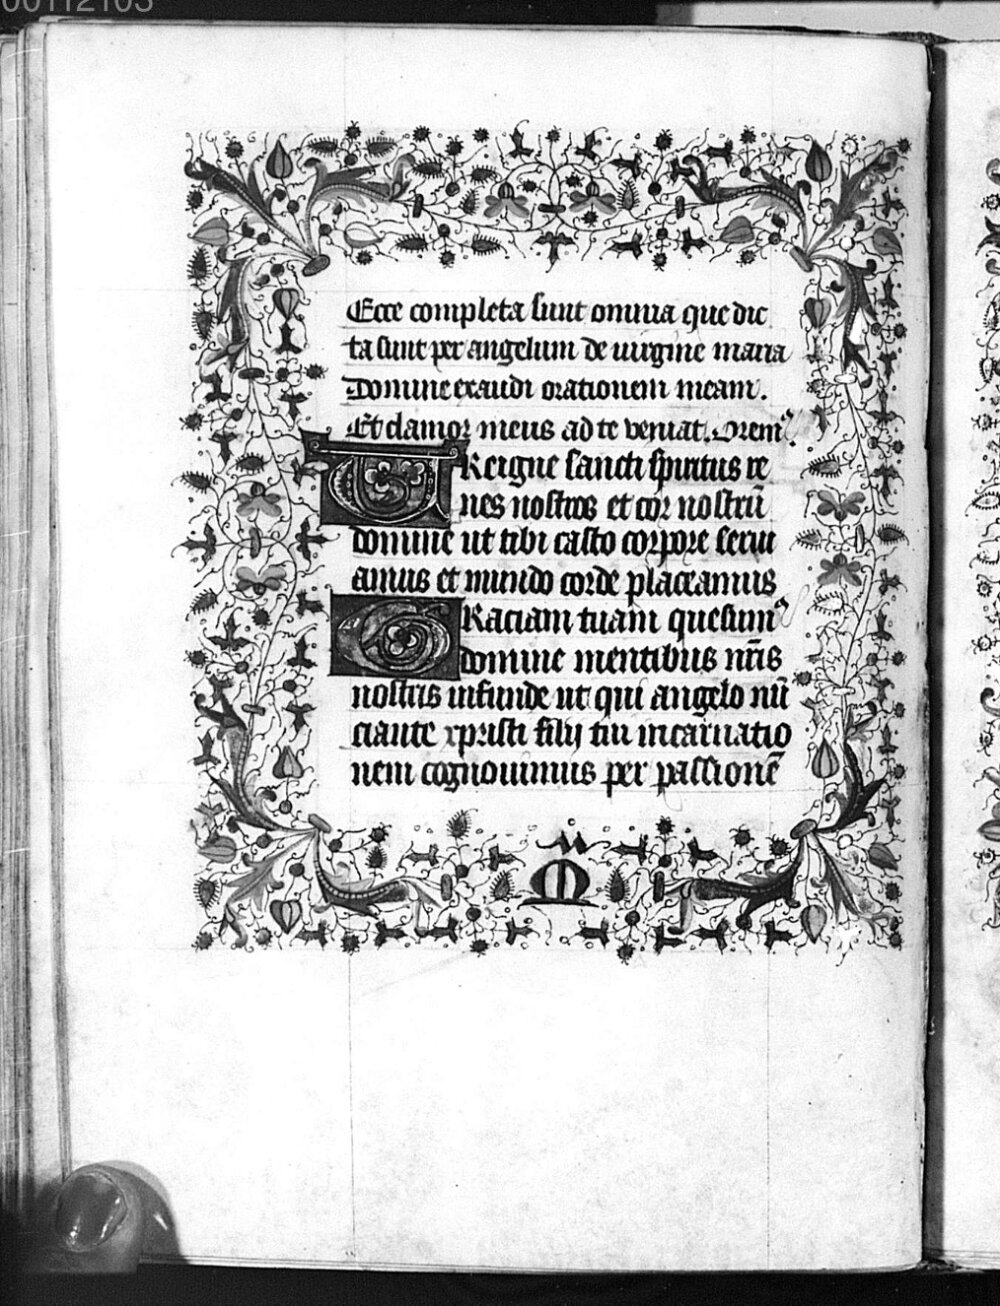 00112103
Ecce completa sunt omnia que dic
ta sunt per angelum de uirgine maria
Domine exaudi orationem meam.
Et clamor meus ad te veniat. Orem⁹.
VReigne sancti spiritus re
nes nostros et cor nostrū
domine ut tibi casto corpore serui
amus et mundo corde placeamus
GRaciam tuam quesum⁹
domine mentibus nr̄is
nostris infunde ut qui angelo nū
ciante xpristi filij tui incarnatio
nem cognouimus per passionē
M